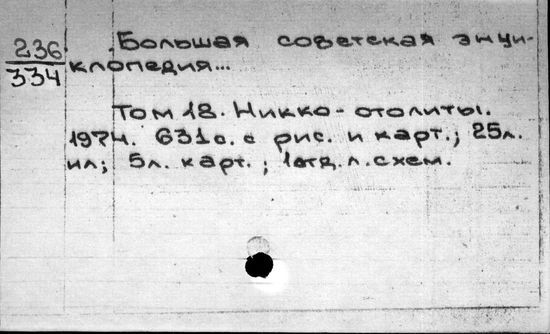 236
334
Большая советская энци-
клопедия...
Том 18. Никко-отолиты.
1974. 631с. с рис. и карт.; 25л.
ил; 5л. карт.; 1отд.л.схем.